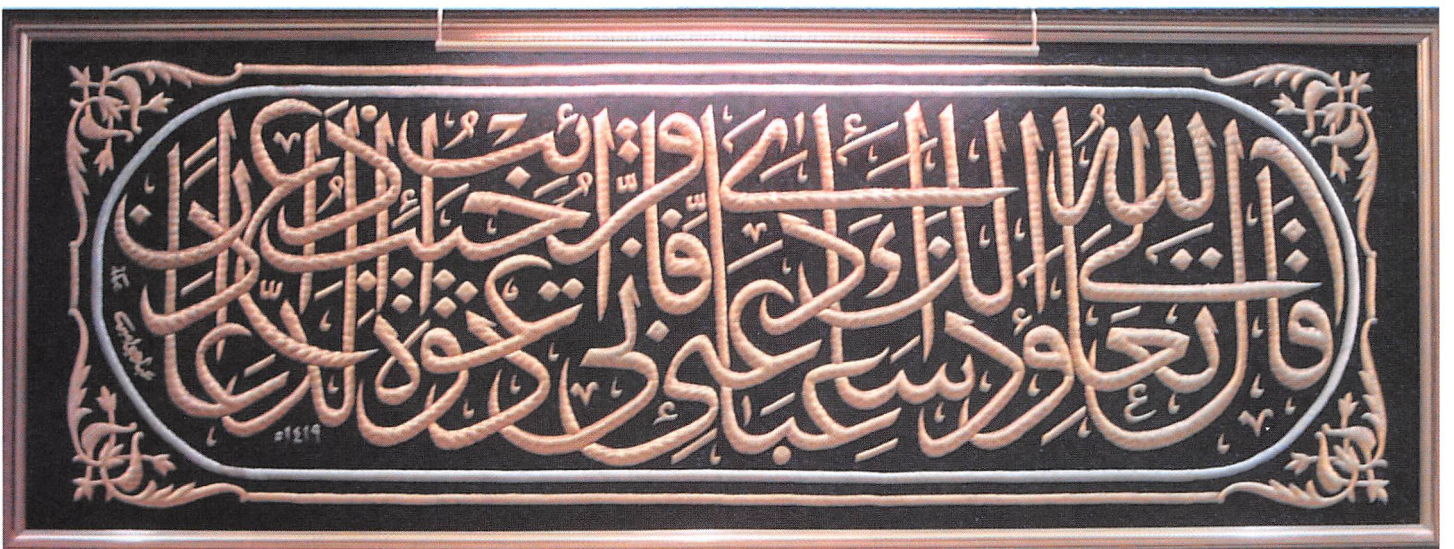 قال الله تعالى وإذا سألك عبادي عني فإني قريب أجيب دعوة الداع إذا دعان
١٤١٩ه